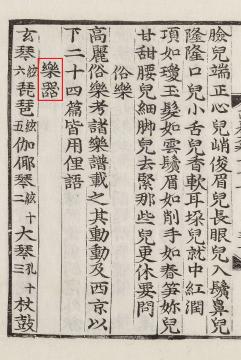 臉兒端正心兒峭俊眉兒長眼兒入鬢鼻兒
隆隆口兒小舌兒香軟耳垜兒就中紅潤
項如瓊玉髮如雲鬢眉如削手如春笋妳兒
甘甜腰兒細脚兒去緊那些兒更休要問
俗樂
高麗俗樂考諸樂譜載之其動動及西京以
下二十四篇皆用俚語
樂器
玄琴絃六琵琶絃五伽倻琴絃十二大琴孔十三杖鼓